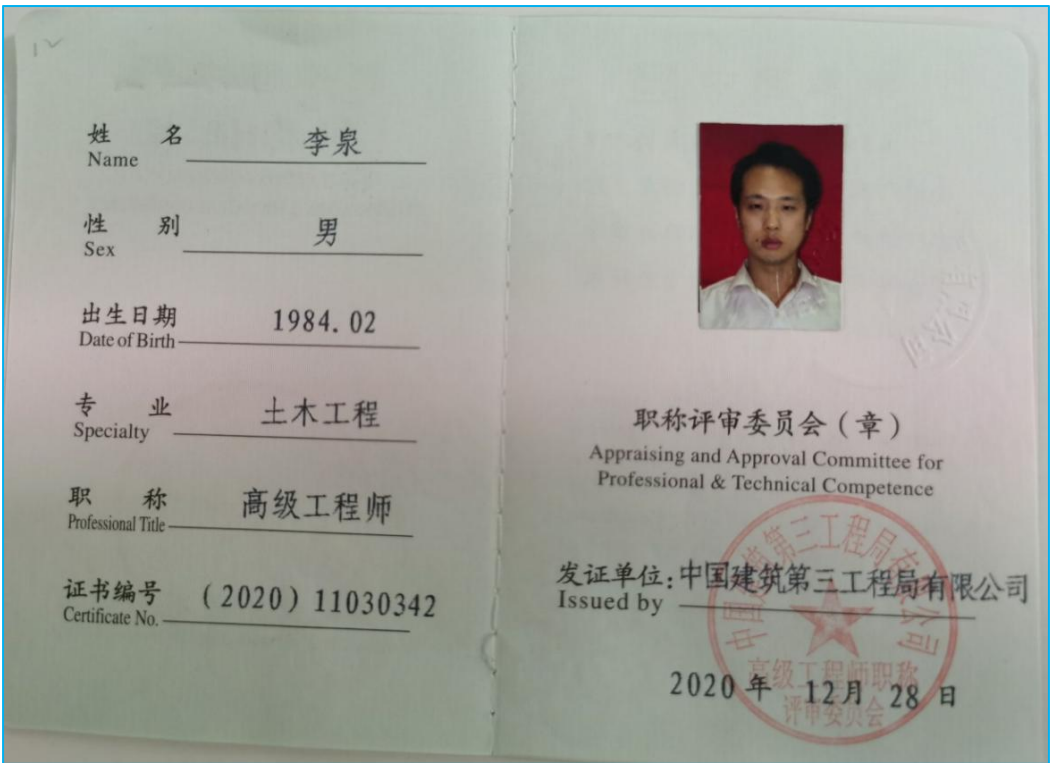 姓 名 李泉
Name
性 别 男
Sex
出生日期 1984.02
Date of Birth
专 业 土木工程
Specialty
职 称 高级工程师
Professional Title
证书编号 (2020) 11030342
Certificate No.
职称评审委员会（章）
Appraising and Approval Committee for
Professional & Technical Competence
发证单位:中国建筑第三工程局有限公司
Issued by
2020 年 12月 28 日
中国建筑第三工程局有限公司
高级工程师职称
评审委员会